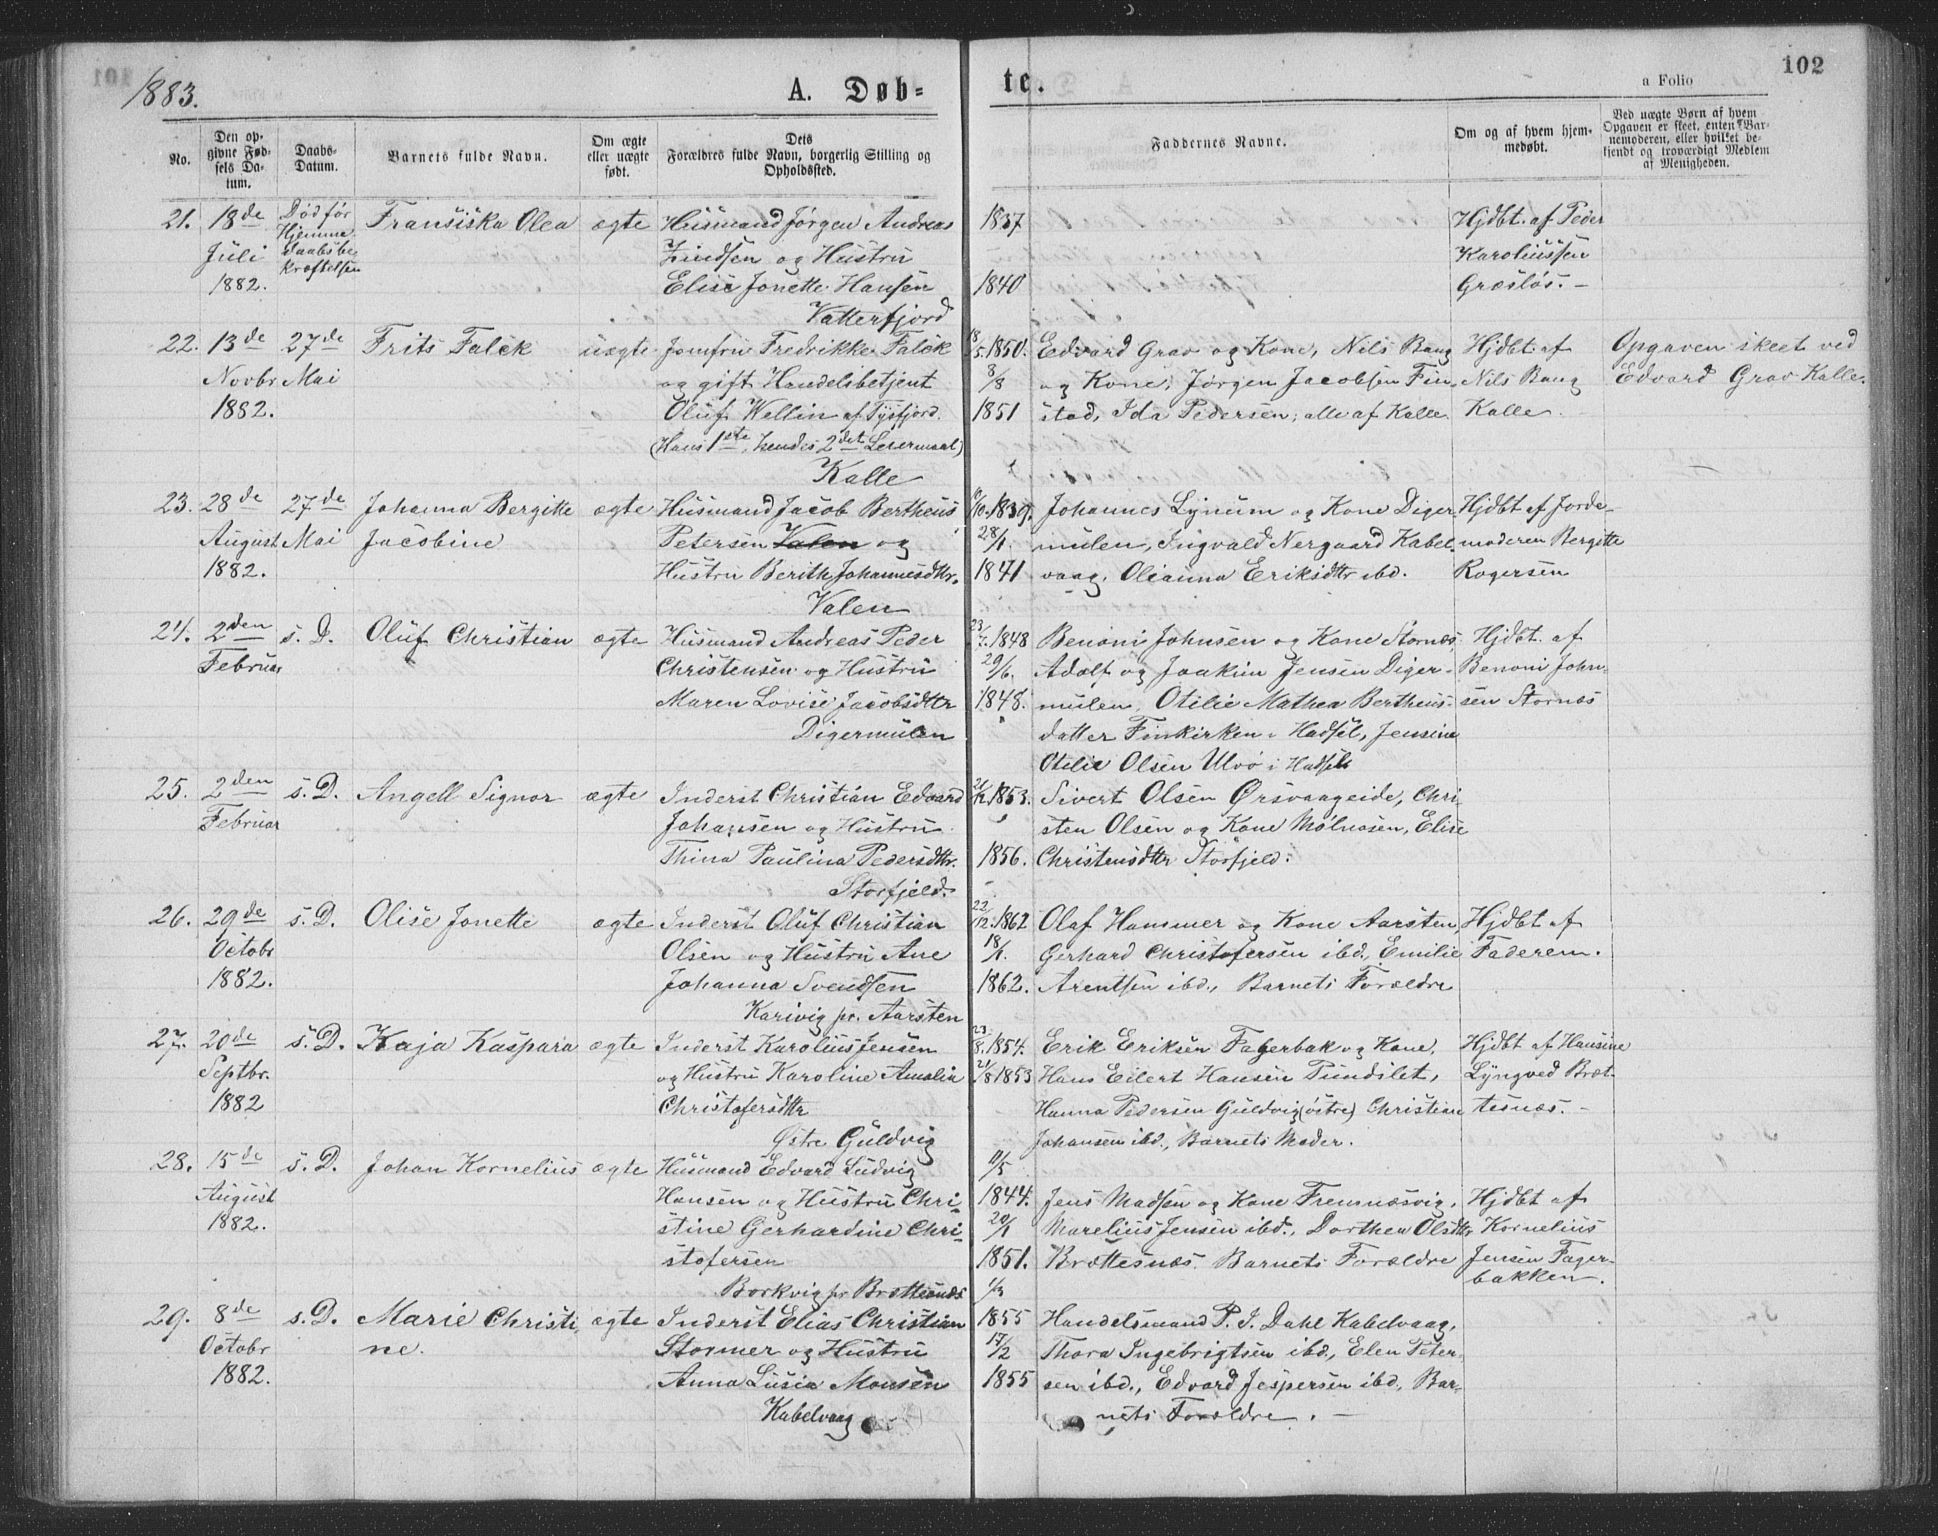 1883.
A. Døb=
te.
a Folio
102
No.
Den op-
givne Fød-
sels Da-
tum.
Daabs-
Datum.
Barnets fulde Navn.
Om ægte
eller uægte
født.
Dets
Forældres fulde Navn, borgerlig Stilling og
Opholdssted.
Faddernes Navne.
Om og af hvem hjem-
medøbt.
Ved uægte Børn af hvem
Opgaven er skeet, enten Bar-
nemoderen, eller hvilket be-
kjendt og troværdigt Medlem
af Menigheden.
21. 18de Død før Fransiska Olea ægte Husmand Jørgen Andreas 1837 Hjdbt. af Peder
Juli Hjemme Lindsen og Hustru Karoliussen
daabsbe
1882. kræftelsen Elise Jonette Hansen 1840 Græsløs.-
Vatterfjord
22. 13de 27de Frits Falck uægte Jomfru Fredrikke Falck 18/5 1850. Edvard Grav og Kone, Nils Bang Hjdbt. af Opgaven skeet ved
Novbr Mai og gift Handelsbetjent 8/8 og Kone, Jørgen Jacobsen Fin- Nils Bang Edvard Grav Kalle.
1882. Oluf Wellin af Tysfjord. 1851 stad, Ida Pedersen, alle af Kalle. Kalle.
(Hans 1ste, hendes 2det Leiermaal)
Kalle
23. 28de 27de Johanna Bergitte ægte Husmand Jacob Bertheus 1839. Johannes Lynum og Kone Diger- Hjdbt af Jorde-
August Mai Jacobine Petersen Valen og 28/1. mulen, Ingvald Nergaard Kabel- moderen Bergitte
1882. Hustru Berith Johannesdtr. 1841 vaag, Olianna Eriksdtr ibd. Rogersen
Valen
24. 2den s. D. Oluf Christian ægte Husmand Andreas Peder 1848 Benoni Johnsen og Kone Stornæs, Hjdbt. af
Februar Christensen og Hustru 29/6. Adolf og Joakim Jensen Diger- Benoni John-
Maren Lovise Jacobsdtr 1848. mulen, Otilie Mathea Bertheus- sen Stornæs
Digermulen datter Finkirken i Hadsel, Jensine
Otilie Olsen Ulvø i Hadsel
25. 2den s. D. Angell Signor ægte Inderst Christian Edvard 1853. Sivert Olsen Ørsvaageide, Chri-
Februar Johansen og Hustru sten Olsen og Kone Mølnosen, Elise
Thina Paulina Pedersdtr. 1856. Christensdtr Storfjeld.
Storfjeld.
26. 29de s. D. Olise Jonette ægte Inderst Oluf Christian 22/12. 1862 Olaf Hammer og Kone Aarsten, Hjdbt af
Octobr Olsen og Hustru Ane 18/1. Gerhard Christofersen ibd., Emilie Faderen.
1882. Johanna Svendsen 1862. Arentsen ibd., Barnets Forældre
Karivig pr. Aarsten
27. 20de s. D. Kaja Kaspara ægte Inderst Karolius Jensen 23/8. 1854. Erik Eriksen Fagerbak og Kone, Hjdbt af Hansine
Septbr. og Hustru Karoline Amalia 21/8 1853 Hans Eilert Hansen Pundslet, Lyngved Bret-
1882 Christofersdtr Hanna Pedersen Guldvig (østre) Christian tesnæs.-
Østre Guldvig Johansen ibd., Barnets Moder.
28. 15de s. D. Johan Kornelius ægte Husmand Edvard Ludvig 11/5
August Hansen og Hustru Chri- 1844. Jens Madsen og Kone Fremnæsvig, Hjdbt af
1882. stine Gerhardine Chri- 20/1 Marelius Jensen ibd., Dorthea Olsdtr Kornelius
stofersen 1851. Brættesnæs. Barnets Forældre Jensen Fager-
bakken.
Borkvig pr Brettesnæs
29. 8de s. D. Marie Christi- ægte Inderst Elias Christian 1855 Handelsmand P. J. Dahl Kabelvaag,
Octobr ne. Stormer og Hustru 17/2 Thora Ingebrigtsen ibd., Elen Peter-
1882. Anna Lusia Monsen 1855 sen ibd., Edvard Jespersen ibd., Bar-
Kabelvaag nets Forældre.-